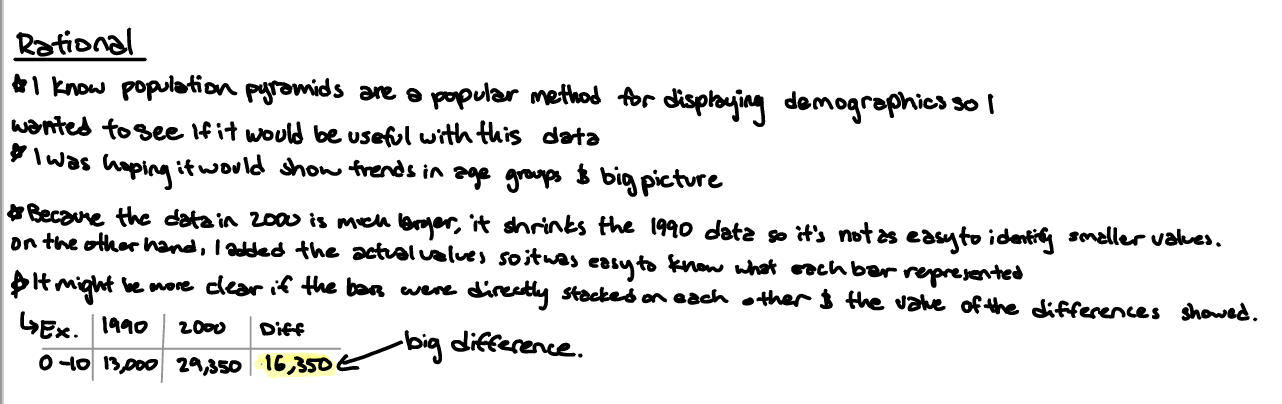 Rational
* I know population pyramids are a popular method for displaying demographics so I
wanted to see if it would be useful with this data
* I was hoping it would show trends in age groups & big picture
* Because the data in 2000 is much larger, it shrinks the 1990 data so it's not as easy to identify smaller values.
on the other hand, I added the actual values so it was easy to know what each bar represented
* It might be more clear if the bars were directly stacked on each other & the value of the differences showed.
↳ Ex. | 1990 | 2000 | Diff
0-10 | 13,000 | 29,350 | 16,350 ← big difference.